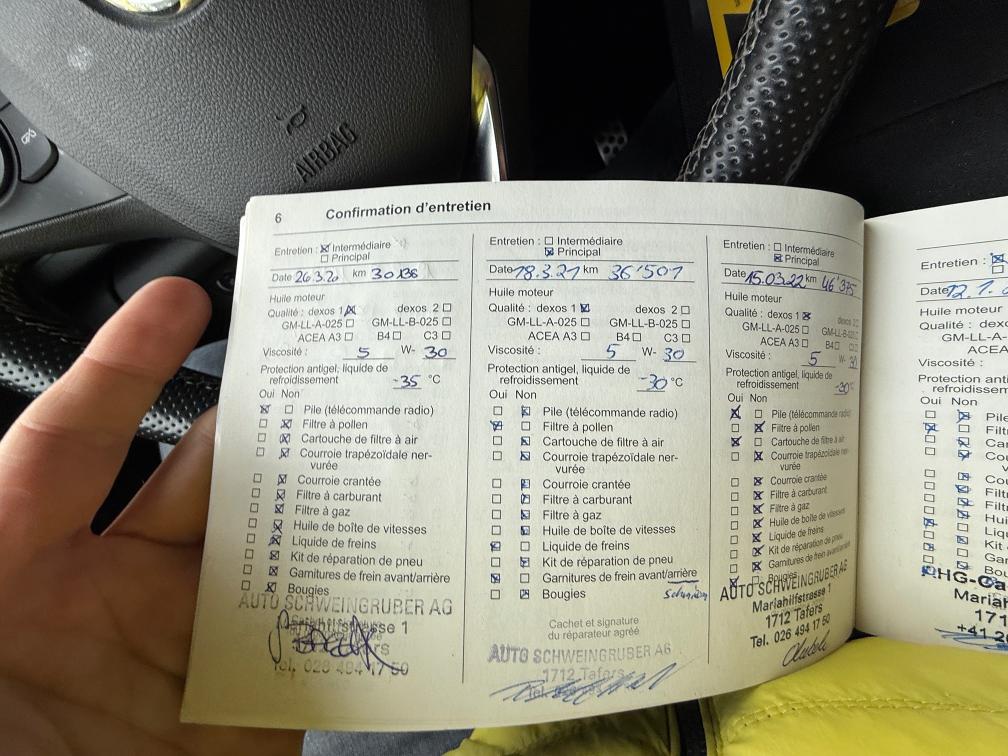 AIRBAG
6 Confirmation d'entretien
Entretien : ☒ Intermédiaire
☐ Principal
Date 26.3.20 km 30138
Huile moteur
Qualité : dexos 1 ☒ dexos 2 ☐
GM-LL-A-025 ☐ GM-LL-B-025 ☐
ACEA A3 ☐ B4 ☐ C3 ☐
Viscosité : 5 W- 30
Protection antigel, liquide de
refroidissement -35 °C
Oui Non
☒ ☐ Pile (télécommande radio)
☐ ☒ Filtre à pollen
☐ ☒ Cartouche de filtre à air
☐ ☒ Courroie trapézoïdale ner-
vurée
☐ ☒ Courroie crantée
☐ ☒ Filtre à carburant
☐ ☒ Filtre à gaz
☐ ☒ Huile de boîte de vitesses
☐ ☒ Liquide de freins
☐ ☒ Kit de réparation de pneu
☐ ☒ Garnitures de frein avant/arrière
☐ ☒ Bougies
AUTO SCHWEINGRUBER AG
Tel. 026 494 17 50
Entretien : ☐ Intermédiaire
☒ Principal
Date 18.3.21 km 36'501
Huile moteur
Qualité : dexos 1 ☒ dexos 2 ☐
GM-LL-A-025 ☐ GM-LL-B-025 ☐
ACEA A3 ☐ B4 ☐ C3 ☐
Viscosité : 5 W- 30
Protection antigel, liquide de
refroidissement -30 °C
Oui Non
☐ ☒ Pile (télécommande radio)
☒ ☐ Filtre à pollen
☐ ☒ Cartouche de filtre à air
☐ ☒ Courroie trapézoïdale ner-
vurée
☐ ☒ Courroie crantée
☐ ☒ Filtre à carburant
☐ ☒ Filtre à gaz
☐ ☒ Huile de boîte de vitesses
☒ ☐ Liquide de freins
☐ ☒ Kit de réparation de pneu
☒ ☐ Garnitures de frein avant/arrière
☐ ☒ Bougies
Cachet et signature
du réparateur agréé
AUTO SCHWEINGRUBER AG
1712 Tafers
Entretien : ☐ Intermédiaire
☒ Principal
Date 15.03.22 km 46'375
Huile moteur
Qualité : dexos 1 ☒ dexos 2 ☐
GM-LL-A-025 ☐ GM-LL-B-025
ACEA A3 ☐ B4 ☐
Viscosité : 5 W- 30
Protection antigel, liquide de
refroidissement -30°
Oui Non
☒ ☐ Pile (télécommande radio)
☐ ☒ Filtre à pollen
☒ ☐ Cartouche de filtre à air
☐ ☒ Courroie trapézoïdale ner-
vurée
☐ ☒ Courroie crantée
☐ ☒ Filtre à carburant
☐ ☒ Filtre à gaz
☐ ☒ Huile de boîte de vitesses
☐ ☒ Liquide de freins
☐ ☒ Kit de réparation de pneu
☐ ☒ Garnitures de frein avant/arrière
☒ ☐ Bougies
AUTO SCHWEINGRUBER AG
Mariahilfstrasse 1
1712 Tafers
Tel. 026 494 17 50
Entretien : ☒
Date 12.1.
Huile moteur
Qualité : dex
GM-LL-A
ACEA
Viscosité :
Protection anti
refroidissemen
Oui Non
☐ ☒ Pile
☒ ☐ Filt
☐ ☒ Car
☐ ☒ Cou
☐ ☒ Cou
☐ ☒ Filt
☐ ☒ Filt
☐ ☒ Hu
☒ ☐ Liqu
☒ ☐ Kit
☒ ☐ Ga
☒ ☐ Bou
HG-Ca
Mariah
171
+41 26